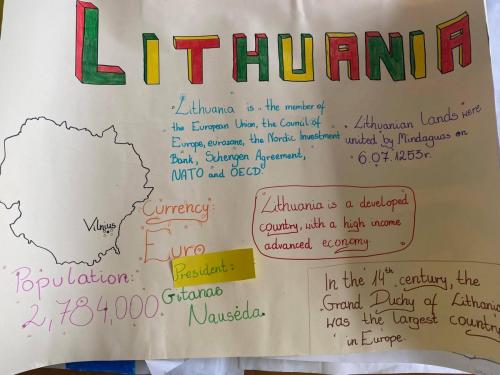 LITHUANIA
Lithuania is the member
of the European Union, the Council of
Europe, eurozone, the Nordic Investment
Bank, Schengen Agreement,
NATO and OECD.
Lithuanian Lands were
united by Mindaugas on
6.07.1253r.
Vilnius
Currency:
Euro
Lithuania is a developed
country, with a high income
advanced economy.
Population:
2,784,000
President:
Gitanas
Nausėda.
In the 14th century, the
Grand Duchy of Lithuania
was the largest country
in Europe.